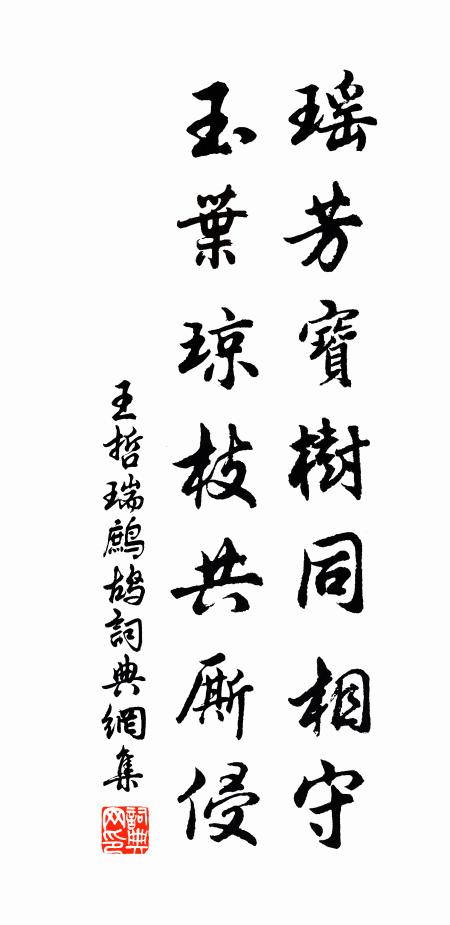 瑶芳寶樹同相守
玉葉琼枝共厮侵
王哲瑞鷓鴣詞典網集
詞典网印